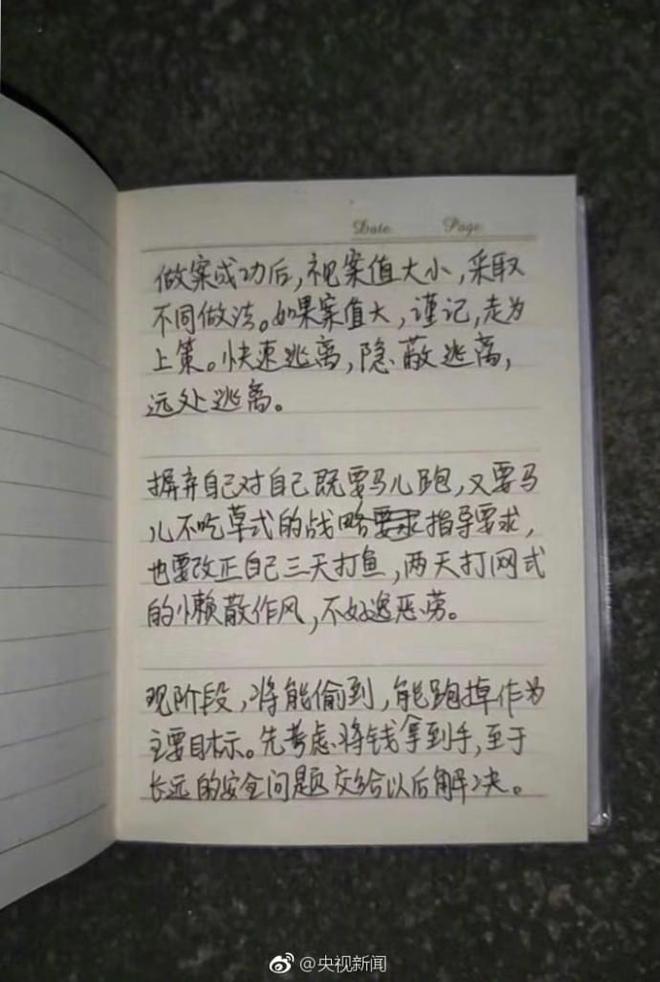 Date Page
做案成功后,视案值大小,采取
不同做法。如果案值大,谨记,走为
上策。快速逃离,隐蔽逃离,
远处逃离。
摒弃自己对自己既要马儿跑,又要马
儿不吃草式的战略要求指导要求,
也要改正自己三天打鱼,两天打网式
的懒散作风,不好逸恶劳。
现阶段,将能偷到,能跑掉作为
主要目标。先考虑将钱拿到手,至于
长远的安全问题交给以后解决。
@央视新闻